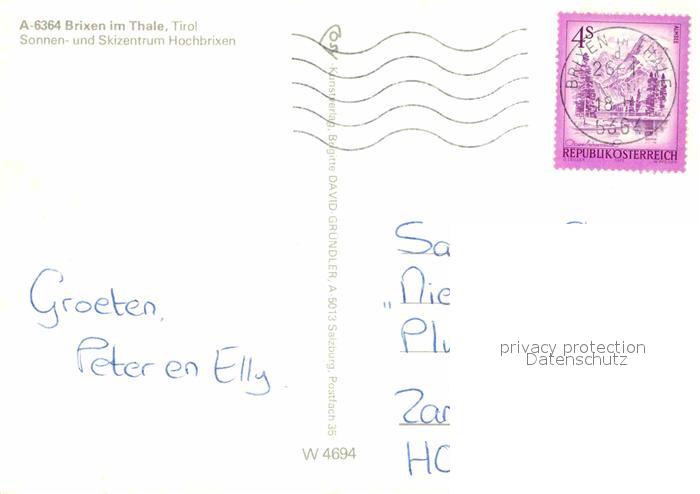 A-6364 Brixen im Thale, Tirol
Sonnen- und Skizentrum Hochbrixen
Groeten,
Peter en Elly.
Kunstverlag, Brigitte DAVID-GRÜNDLER, A-5013 Salzburg, Postfach 35
W 4694
4S
ALMSEE
REPUBLIK ÖSTERREICH
BRIXEN IM THALE
6364
Sa
„Nie
Zar
HO
privacy protection
Datenschutz